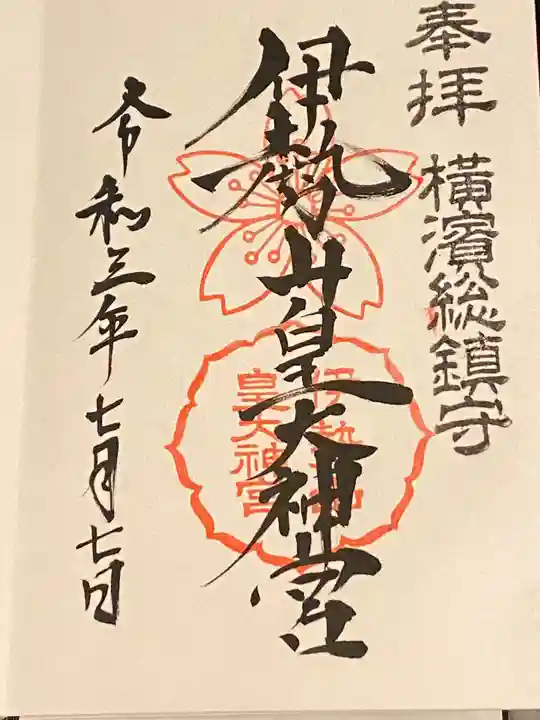 奉拝
横濱総鎮守
伊勢山皇大神宮
伊勢山
皇大神宮
令和三年七月七日